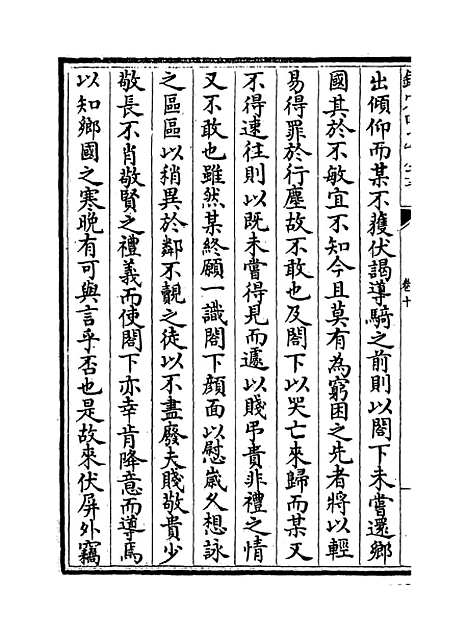 卷十
出傾仰而某不獲伏謁導騎之前則以閤下未嘗還鄉
國其於不敏宜不知今且莫有為窮困之先者將以輕
易得罪於行塵故不敢也及閤下以哭亡來歸而某又
不得速往則以既未嘗得見而遽以賤弔貴非禮之情
又不敢也雖然某終願一識閤下顏面以慰嵗久想詠
之區區以稍異於鄰不覿之徒以不盡廢夫賤敬貴少
敬長不肖敬賢之禮義而使閤下亦幸肯降意而導焉
以知鄉國之寒晚有可與言乎否也是故來伏屏外竊